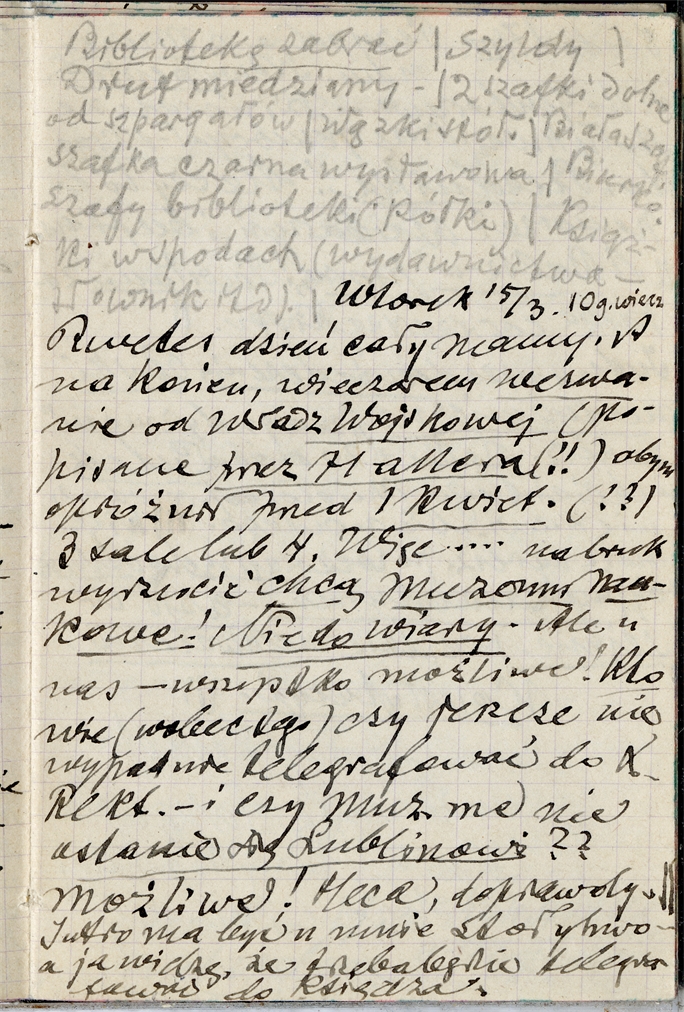 Bibliotekę zabrać | Szyldy |
Drut miedziany - | 2 szafki dolne
od szpargałów | wązki stół. | Biała sza-
szafka czarna wystawowa | Biurko.
Szafy biblioteki (Półki) | Książ-
ki w spodach (wydawnictwa -
słownik itd). |
Wtorek 15/3. 10 g. wiecz
Rwetes dzień cały mamy. A
na końcu, wieczorem wezwa-
nie od Władz Wojskowej (po-
pisane przez Hallera (!!) abym
opróżnił przed 1 Kwiet. (!?)
3 sale lub 4. Więc .... na bruk
wyrzucić chcą Muzeum Nau-
kowe! Nie do wiary - Ale u
nas - wszystko możliwe! Kto
wie (wobec tgo) czy jeszcze nie
wypadnie telegrafować do X.
Rekt. - i czy Muz. me nie
ostanie się Lublinowi ??
możliwe! Heca, doprawdy.
Jutro ma być u mnie
a ja widzę, że trzeba będzie telegra-
fować do Księdza.